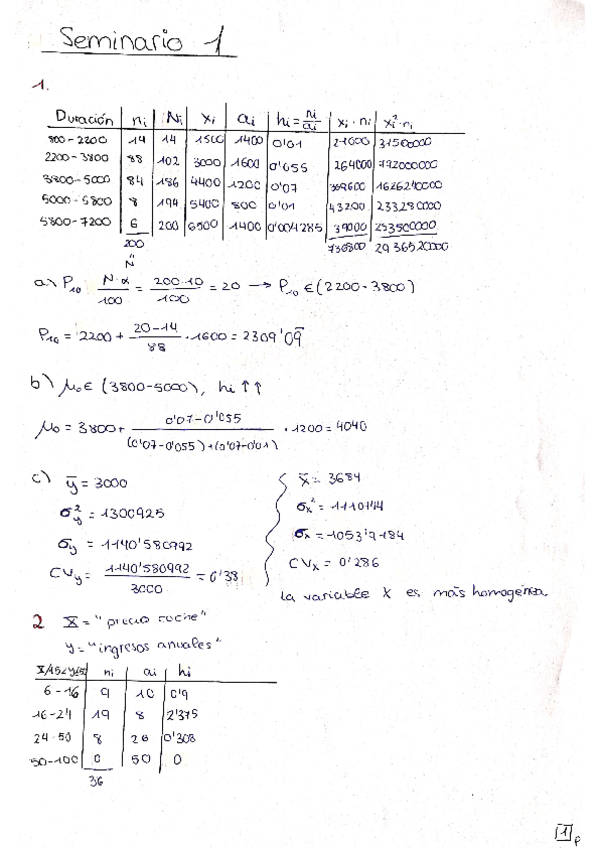 Seminario 1
1.
Duración | ni | Ni | xi | ai | hi = ni/ai | xi · ni | xi² · ni
800 - 2200 | 14 | 14 | 1500 | 1400 | 0'01 | 21000 | 31500000
2200 - 3800 | 88 | 102 | 3000 | 1600 | 0'055 | 264000 | 792000000
3800 - 5000 | 84 | 186 | 4400 | 1200 | 0'07 | 369600 | 1626240000
5000 - 5800 | 8 | 194 | 5400 | 800 | 0'01 | 43200 | 233280000
5800 - 7200 | 6 | 200 | 6500 | 1400 | 0'004285 | 39000 | 253500000
200 736800 2936520000
"
N
a) P10 N·α/100 = 200·10/100 = 20 → P10 ∈ (2200 - 3800)
P10 = 2200 + 20-14/88 · 1600 = 2309'09
b) Mo ∈ (3800-5000), hi ↑↑
Mo = 3800 + 0'07-0'055/(0'07-0'055)+(0'07-0'01) · 1200 = 4040
c) ȳ = 3000 x̄ = 3684
σy² = 1300925 σx² = 1110144
σy = 1140'580992 σx = 1053'9184
CVy = 1140'580992/3000 = 0'38 CVx = 0'286
la variable X es más homogénea.
2 X = "precio coche"
y = "ingresos anuales"
ni | ai | hi
6 - 16 | 9 | 10 | 0'9
16 - 24 | 19 | 8 | 2'375
24 - 50 | 8 | 26 | 0'308
50 - 100 | 0 | 50 | 0
36
1